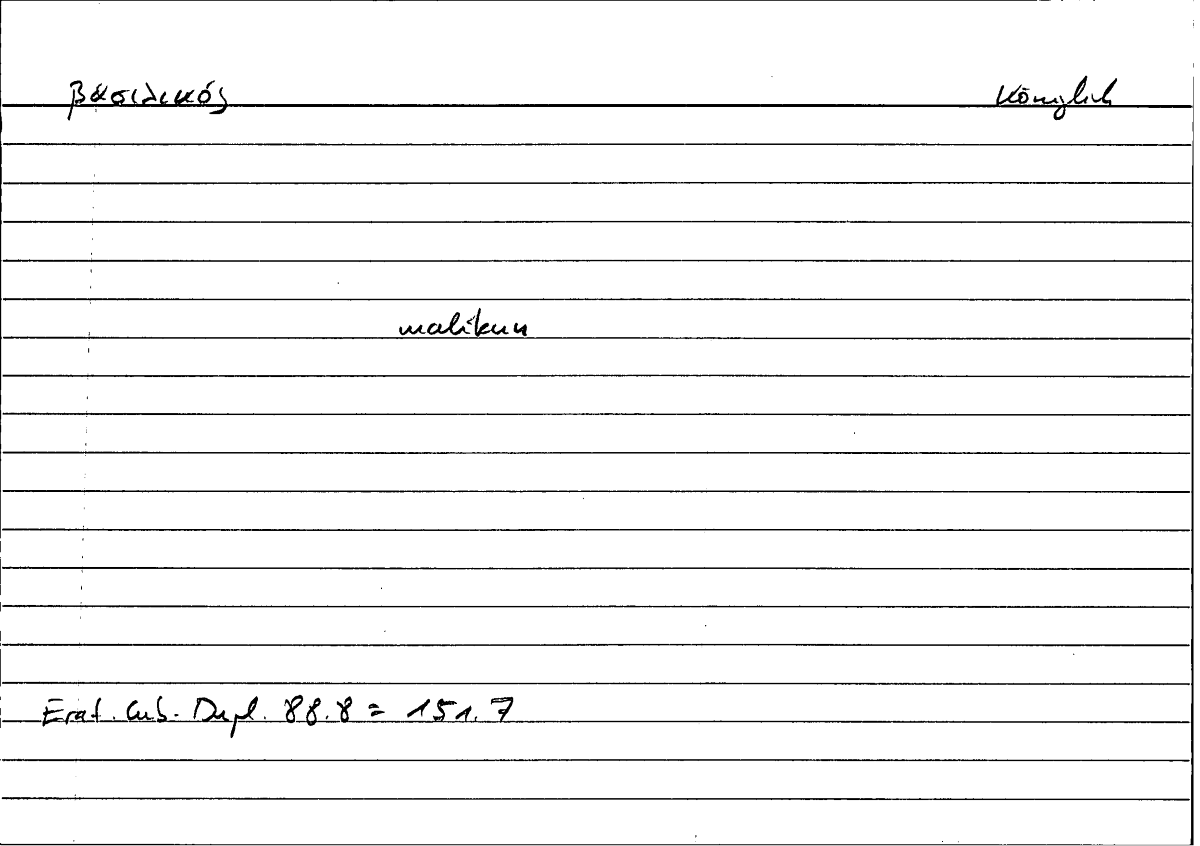 βασιλικός königlich
malikun
Erat. Cub. Dupl. 88.8 = 151.7